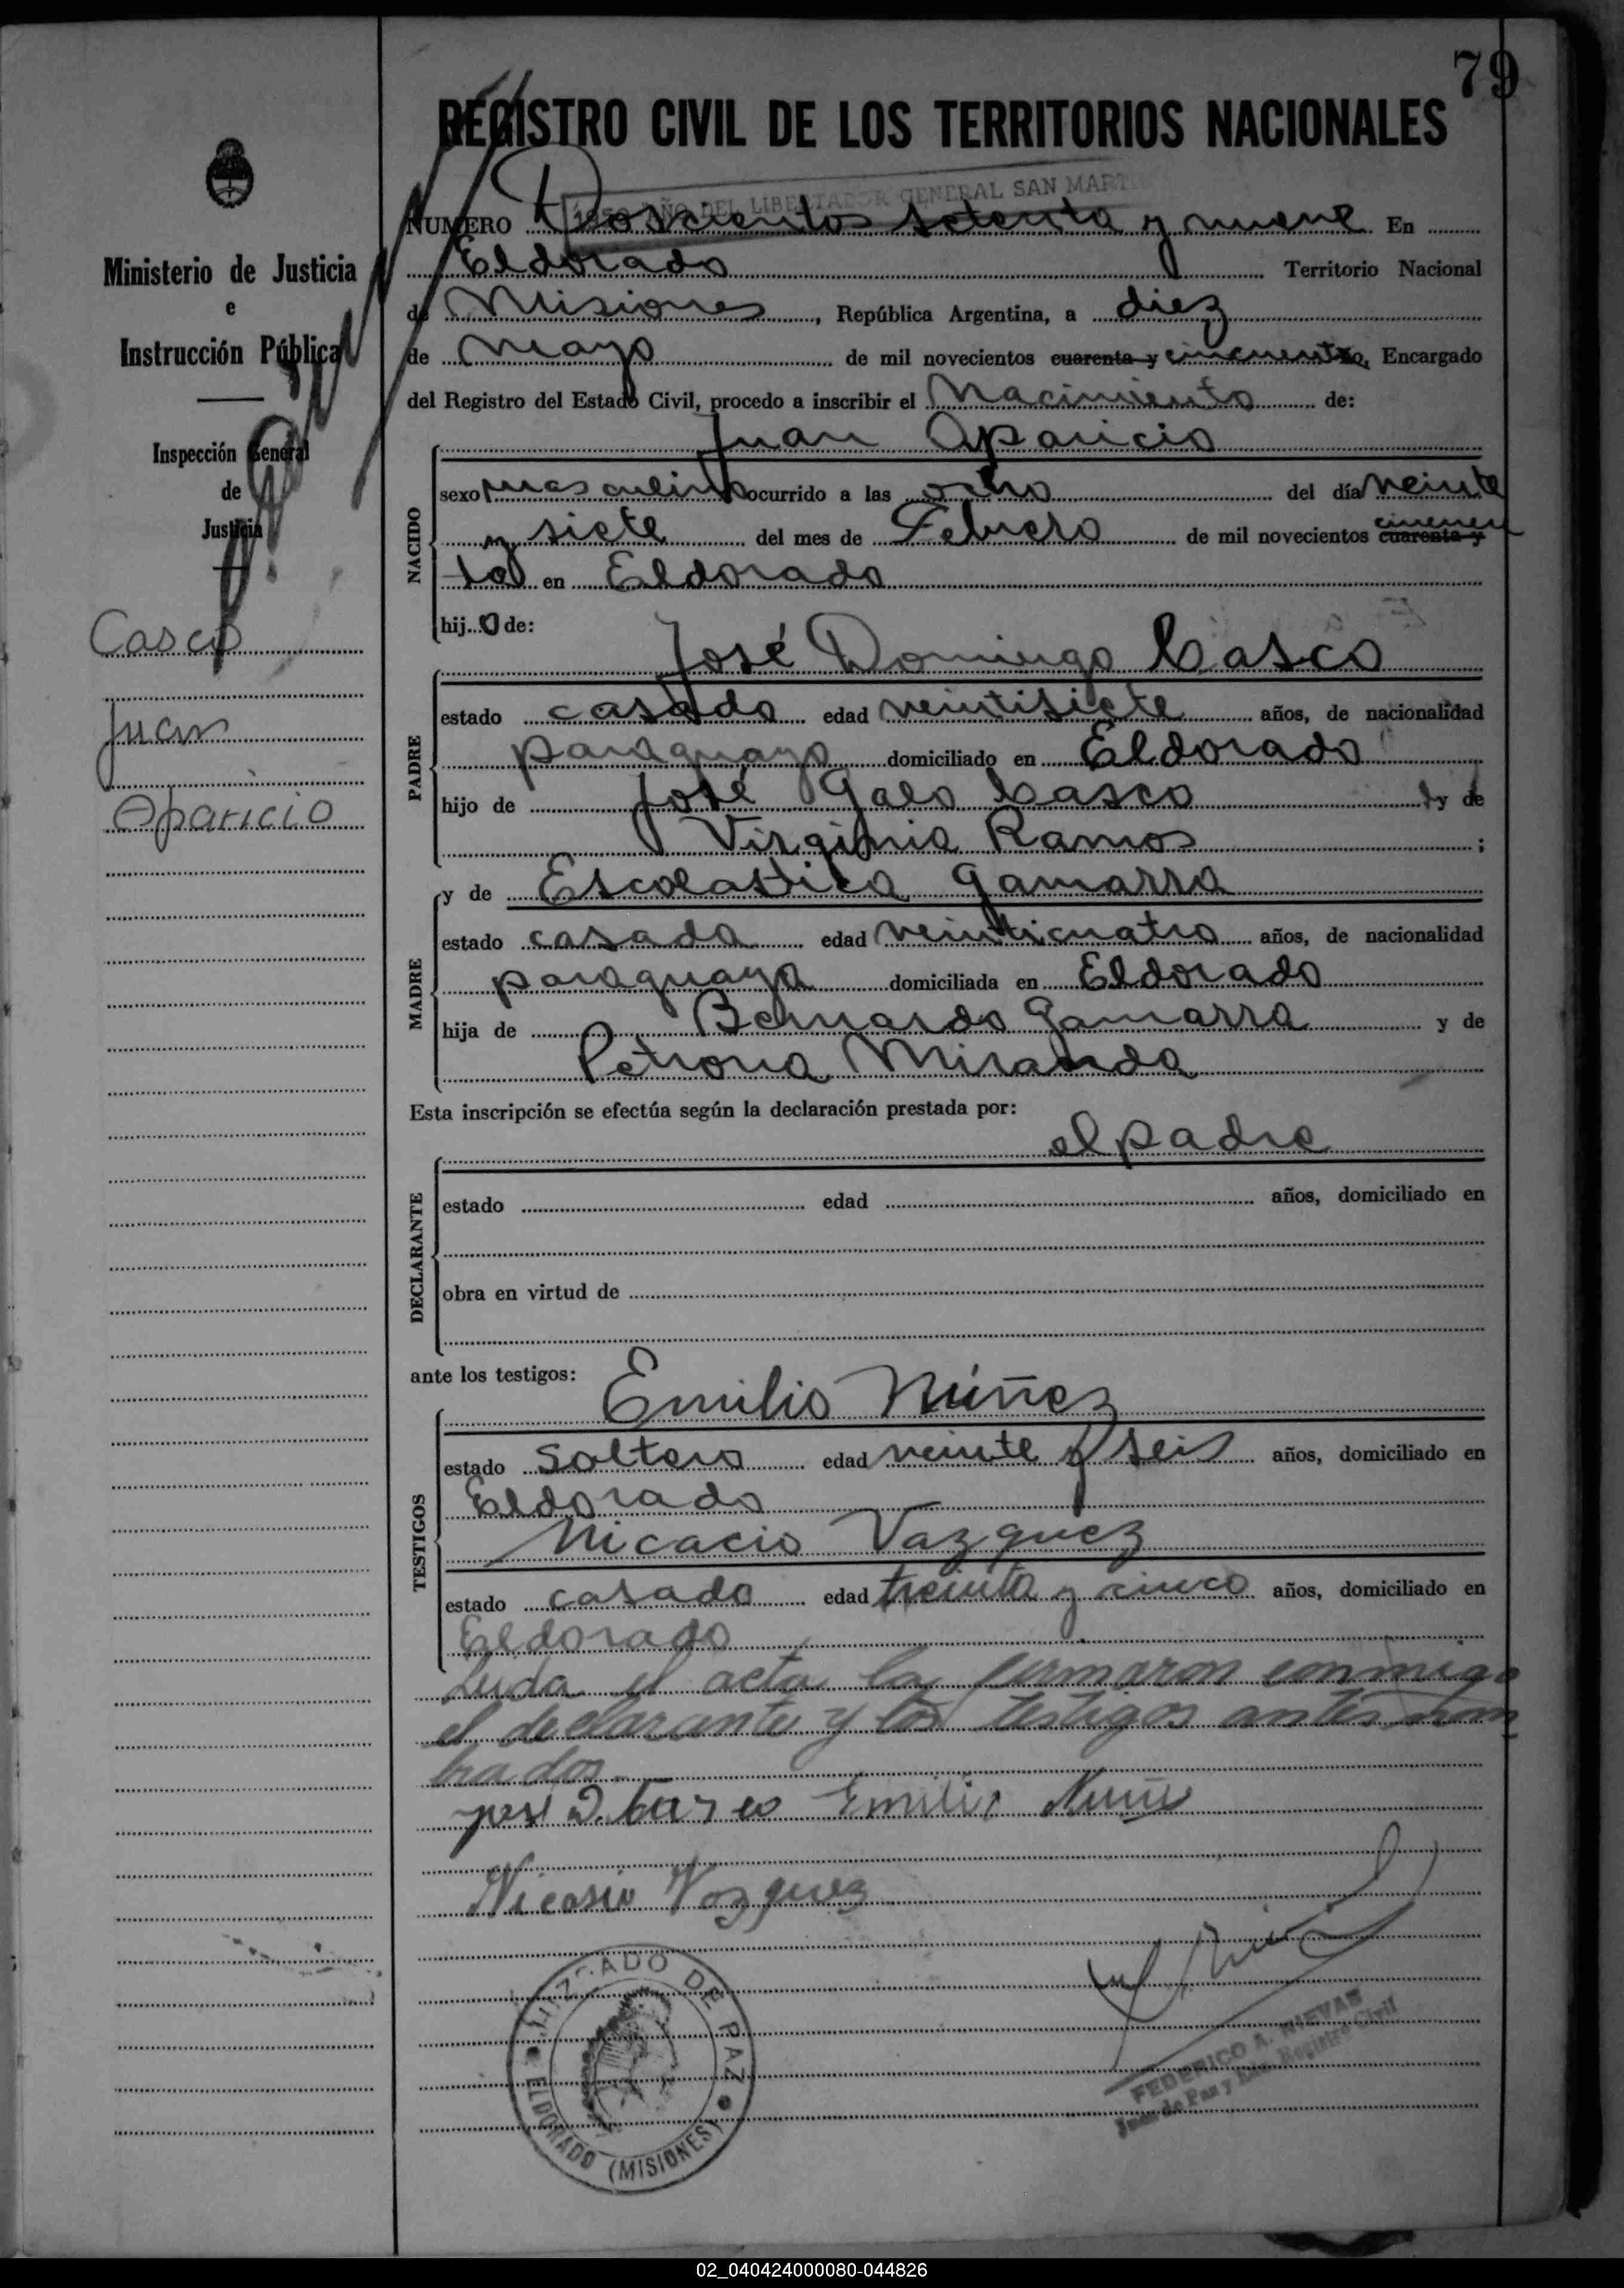 79
REGISTRO CIVIL DE LOS TERRITORIOS NACIONALES
1950 AÑO DEL LIBERTADOR GENERAL SAN MARTIN
NUMERO Doscientos setenta y nueve En
Eldorado Territorio Nacional
de Misiones, República Argentina, a diez
de mayo de mil novecientos cuarenta y cincuenta yo, Encargado
del Registro del Estado Civil, procedo a inscribir el Nacimiento de:
Juan Aparicio
NACIDO
sexo masculino ocurrido a las ocho del día veinte
y siete del mes de Febrero de mil novecientos cuarenta y cincuen
ta en Eldorado
hijo de:
José Domingo Casco
PADRE
estado casado edad veintisiete años, de nacionalidad
paraguayo domiciliado en Eldorado
hijo de José Galo Casco y de
Virginia Ramos ;
y de Escolastica Gamarra
MADRE
estado casada edad veinticuatro años, de nacionalidad
paraguaya domiciliada en Eldorado
hija de Bernardo Gamarra y de
Petrona Miranda
Esta inscripción se efectúa según la declaración prestada por:
el padre
DECLARANTE
estado edad años, domiciliado en
obra en virtud de
ante los testigos:
Emilio Núñez
TESTIGOS
estado soltero edad veinte y seis años, domiciliado en
Eldorado
Nicacio Vazquez
estado casado edad treinta y cinco años, domiciliado en
Eldorado
Leida el acta la firmaron conmigo
el declarante y los testigos antes nom
brados.
Emilio Nuñe
Nicasio Vazquez
JUZGADO DE PAZ
ELDORADO (MISIONES)
FEDERICO A. NIEVAS
Juez de Paz y Enc. Registro Civil
Ministerio de Justicia
e
Instrucción Pública
Inspección General
de
Justicia
Casco
Juan
Aparicio
02_040424000080-044826